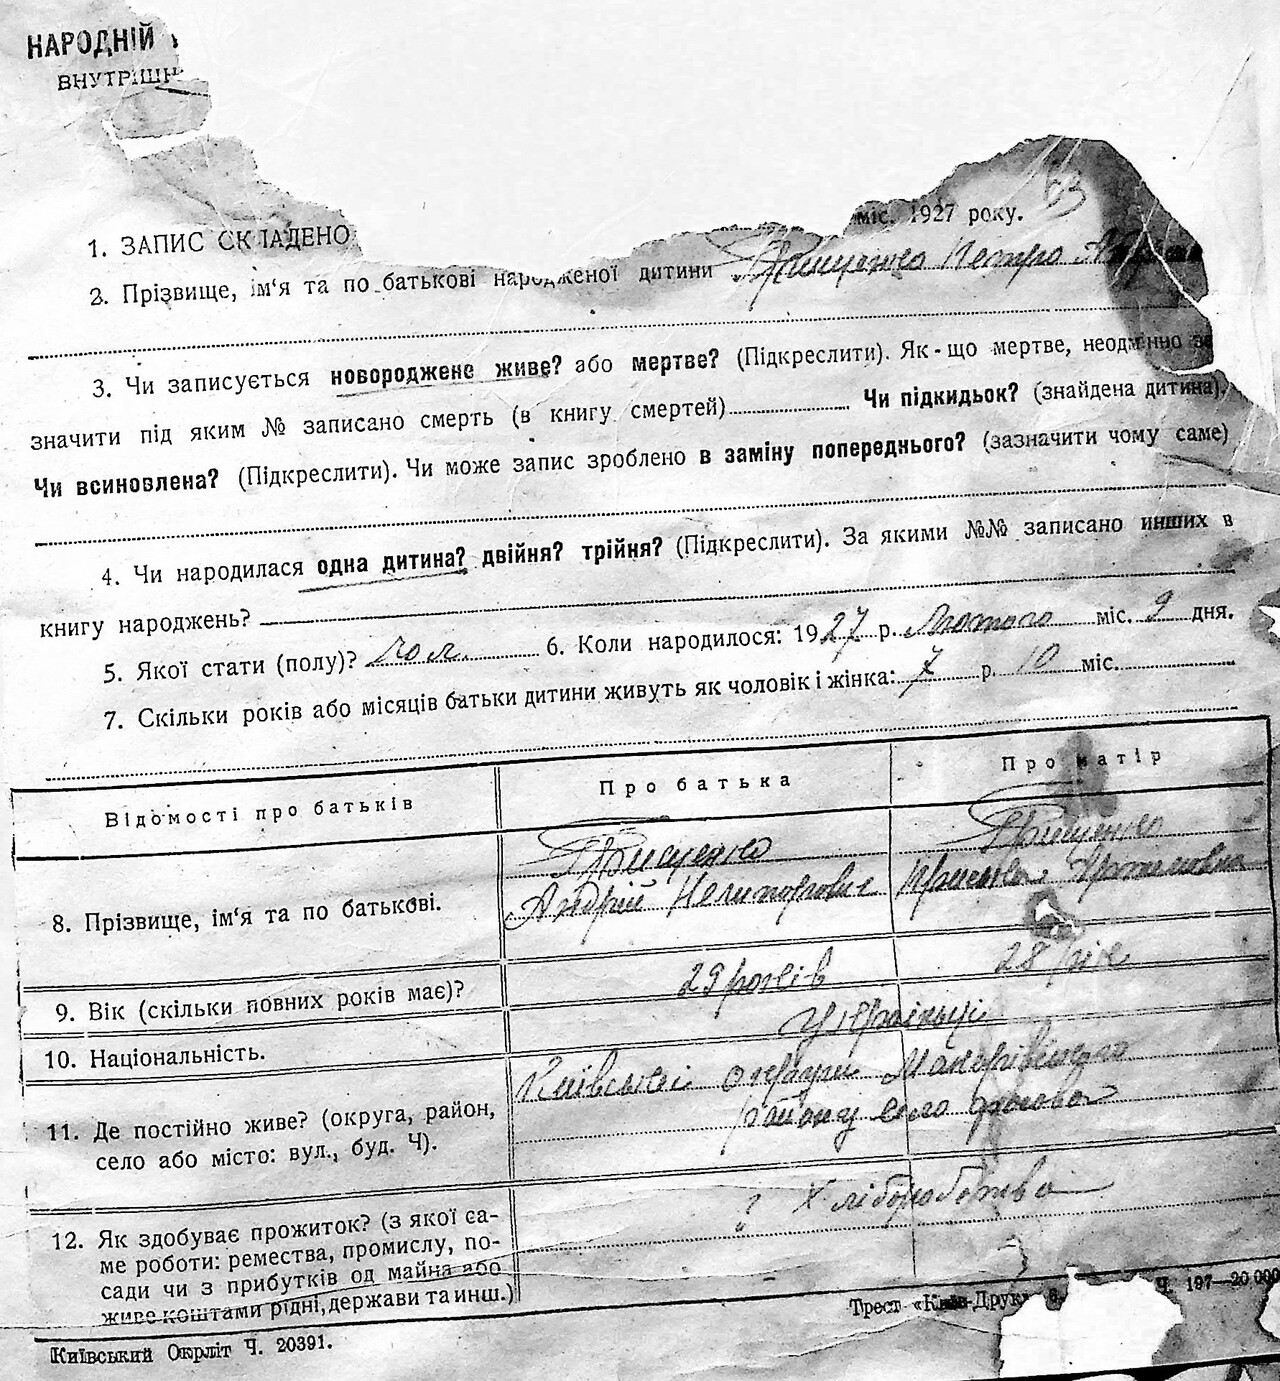 НАРОДНІЙ
ВНУТРІШН
1. ЗАПИС СКЛАДЕНО міс. 1927 року.
2. Прізвище, ім‘я та по батькові народженої дитини Грищенко Петро
3. Чи записується новороджене живе? або мертве? (Підкреслити). Як-що мертве, неодмінно за-
значити під яким № записано смерть (в книгу смертей) Чи підкидьок? (знайдена дитина).
Чи всиновлена? (Підкреслити). Чи може запис зроблено в заміну попереднього? (зазначити чому саме)
4. Чи народилася одна дитина? двійня? трійня? (Підкреслити). За якими №№ записано инших в
книгу народжень?
5. Якої стати (полу)? чол. 6. Коли народилося: 1927 р. Лютого міс. 9 дня.
7. Скільки років або місяців батьки дитини живуть як чоловік і жінка: 7 р. 10 міс.
Відомості про батьків Про батька Про матір
8. Прізвище, ім‘я та по батькові. Грищенко Грищенко
Андрій Нелипорович
9. Вік (скільки повних років має)? 29 років 28 рік
10. Національність. Українці
11. Де постійно живе? (округа, район, село або місто: вул., буд. Ч). Київської округи Макарівського
району село
12. Як здобуває прожиток? (з якої са-
ме роботи: ремества, промислу, по-
сади чи з прибутків од майна або
живе коштами рідні, держави та инш.) Хліборобство
Київський Окрліт Ч. 20391. Трест «Київ-Друк» Ч. 197—20 000